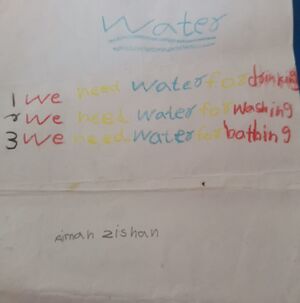 Water
1 we need water for drinking
2 we need water for washing
3 we need water for bathing
Aimah zishan